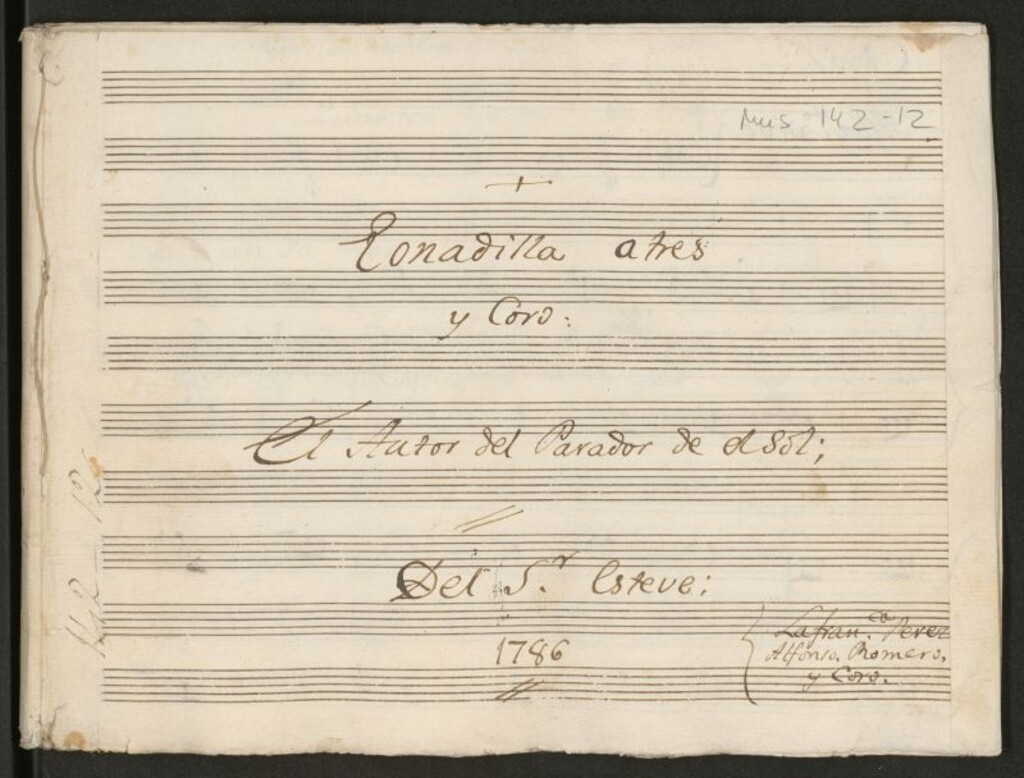 Mus 142-12
+
Tonadilla a tres
y Coro:
El Autor del Parador de el Sol;
Del S.r Esteve;
1786
La fran.ca Perez
Alfonso, Romero,
y Coro.
142-12